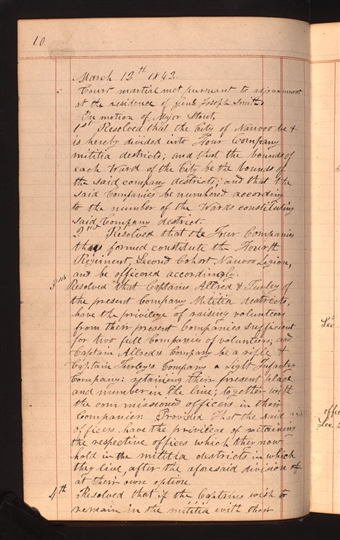 10
March 12th 1842.
Court martial met pursuant to adjournment
at the residence of Genl Joseph Smith
On motion of Major Stout,
1st Resolved that the City of Nauvoo be &
is hereby divided into Four Company
militia districts; and that the bounds of
each Ward of the City be the bounds of
the said company districts; and that the
said Companies be numbered according
to the number of the Wards constituting
said Company district.
2nd Resolved that the Four Companies
thus formed constitute the Fourth
Regiment, Second Cohort Nauvoo Legion,
and be officered accordingly.
3rd
Resolved that Captains Allred & Turley of
the present Company Militia districts,
have the privilege of raising volunteers
from their present Companies sufficient
for two full Companies of volunteers, and
Captain Allreds Company be a rifle &
Captain Turleys Company a Light Infantry
Company: retaining their present place
and number in the line; together with
the commissioned officers in their
Companies: Provided that the said
officers have the privilege of retaining
the respective offices which they now
hold in the militia districts in which
they live, after the aforesaid division &
at their own option.
4th Resolved that if the Captains wish to
remain in the militia with their